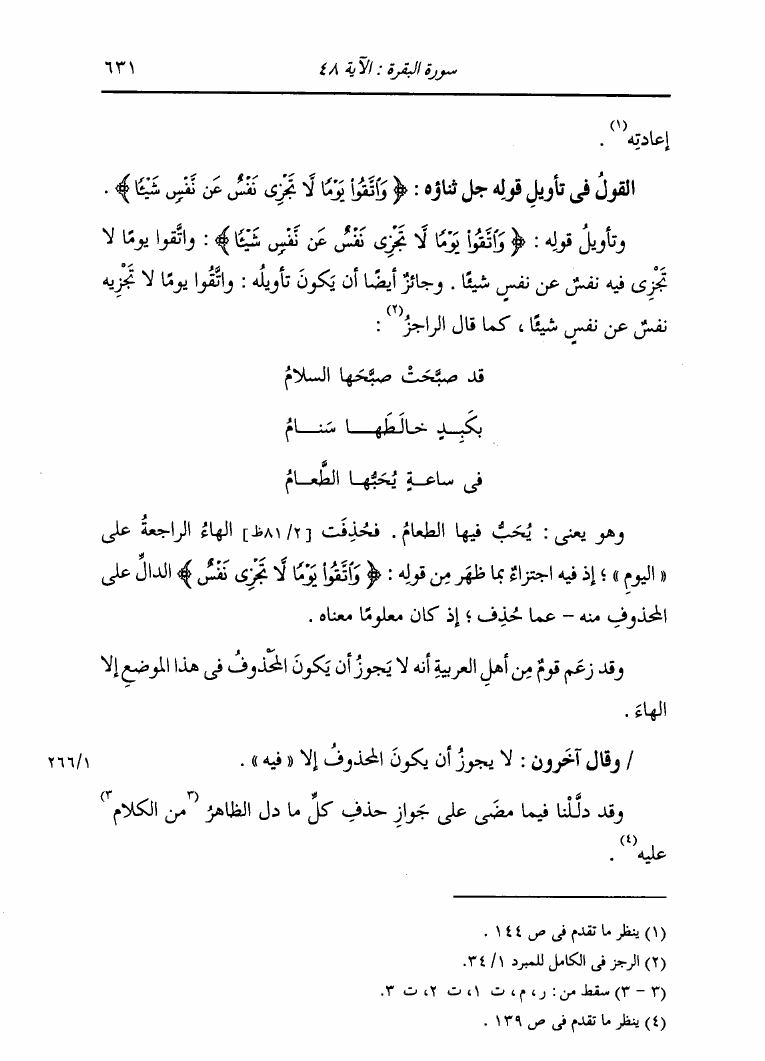 سورة البقرة : الآية ٤٨ ٦٣١
إعادتِه(١) .
القولُ فى تأويلِ قولِه جل ثناؤه : ﴿ وَاتَّقُوا يَوْمًا لَّا تَجْزِى نَفْسٌ عَن نَّفْسٍ شَيْئًا ﴾ .
وتأويلُ قولِه : ﴿ وَاتَّقُوا يَوْمًا لَّا تَجْزِى نَفْسٌ عَن نَّفْسٍ شَيْئًا ﴾ : واتَّقوا يومًا لا
تَجْزِى فيه نفسٌ عن نفسٍ شيئًا . وجائزٌ أيضًا أن يَكونَ تأويلُه : واتَّقُوا يومًا لا تَجْزِيه
نفسٌ عن نفسٍ شيئًا ، كما قال الراجزُ(٢) :
قد صبَّحَتْ صبَّحَها السلامُ
بكَبِـــدٍ خـالَطَهـــا سَنـــامُ
فى ساعـــةٍ يُحَبُّهـا الطَّعـــامُ
وهو يعنى : يُحَبُّ فيها الطعامُ . فحُذِفَت [٨١/٢ظ] الهاءُ الراجعةُ على
« اليومِ » ؛ إذ فيه اجتزاءٌ بما ظهَر مِن قولِه : ﴿ وَاتَّقُوا يَوْمًا لَّا تَجْزِى نَفْسٌ ﴾ الدالِّ على
المحذوفِ منه – عما حُذِف ؛ إذ كان معلومًا معناه .
وقد زعَم قومٌ مِن أهلِ العربيةِ أنه لا يَجوزُ أن يَكونَ المحْذوفُ فى هذا الموضعِ إلا
الهاءَ .
/ وقال آخَرون : لا يجوزُ أن يكونَ المحذوفُ إلا « فيه » . ٢٦٦/١
وقد دلَّلْنا فيما مضَى على جَوازِ حذفِ كلِّ ما دل الظاهرُ (٣من الكلام٣)
عليه(٤) .
(١) ينظر ما تقدم فى ص ١٤٤ .
(٢) الرجز فى الكامل للمبرد ٣٤/١.
(٣ – ٣) سقط من : ر ، م ، ت ١، ت ٢، ت ٣.
(٤) ينظر ما تقدم فى ص ١٣٩ .